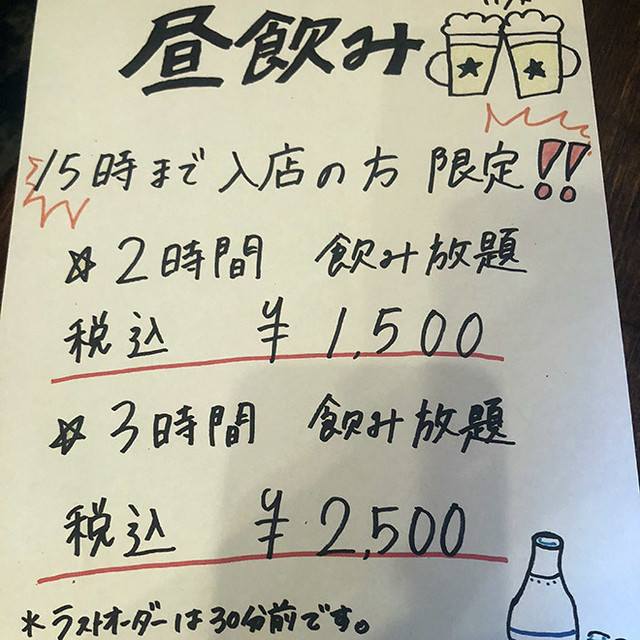 昼飲み
15時まで入店の方 限定!!
☆2時間 飲み放題
税込 ¥1,500
☆3時間 飲み放題
税込 ¥2,500
*ラストオーダーは30分前です。